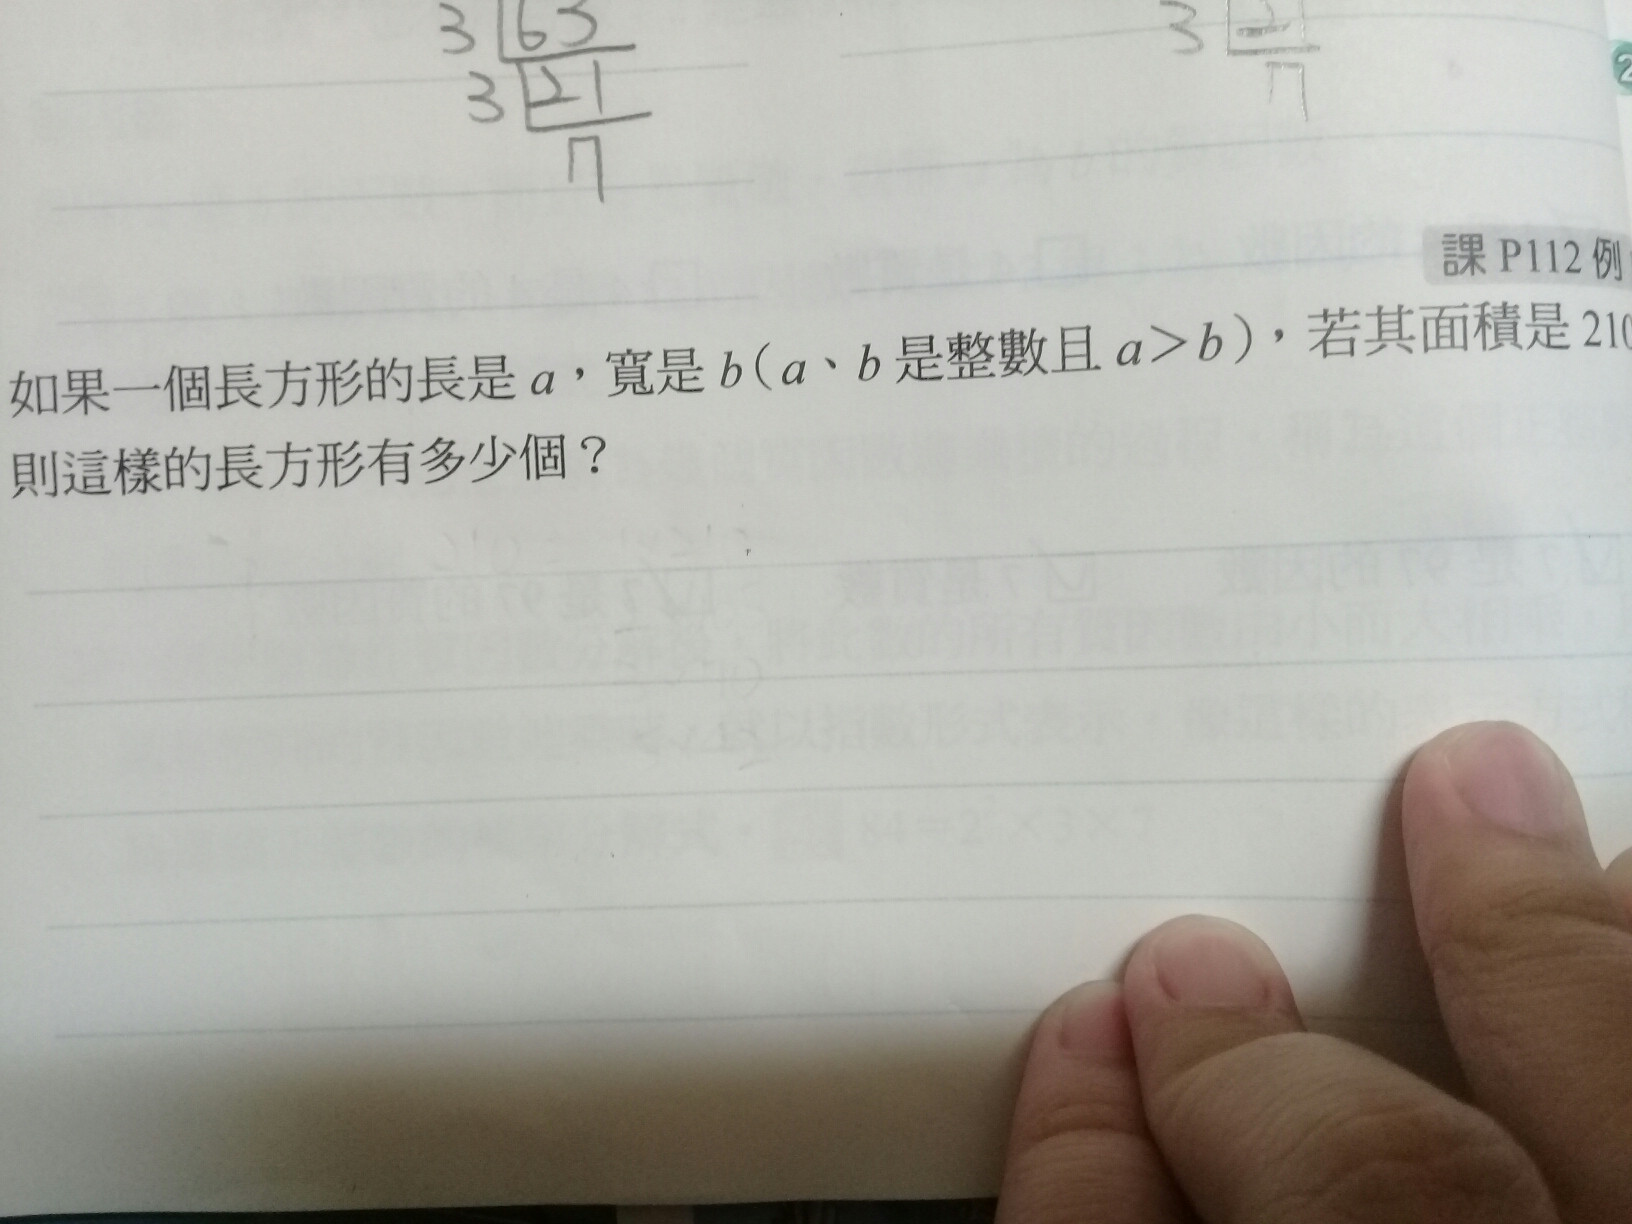 3 63
3 21
7
3
7
2
課 P112 例
如果一個長方形的長是 a，寬是 b（a、b 是整數且 a＞b），若其面積是 210
則這樣的長方形有多少個？